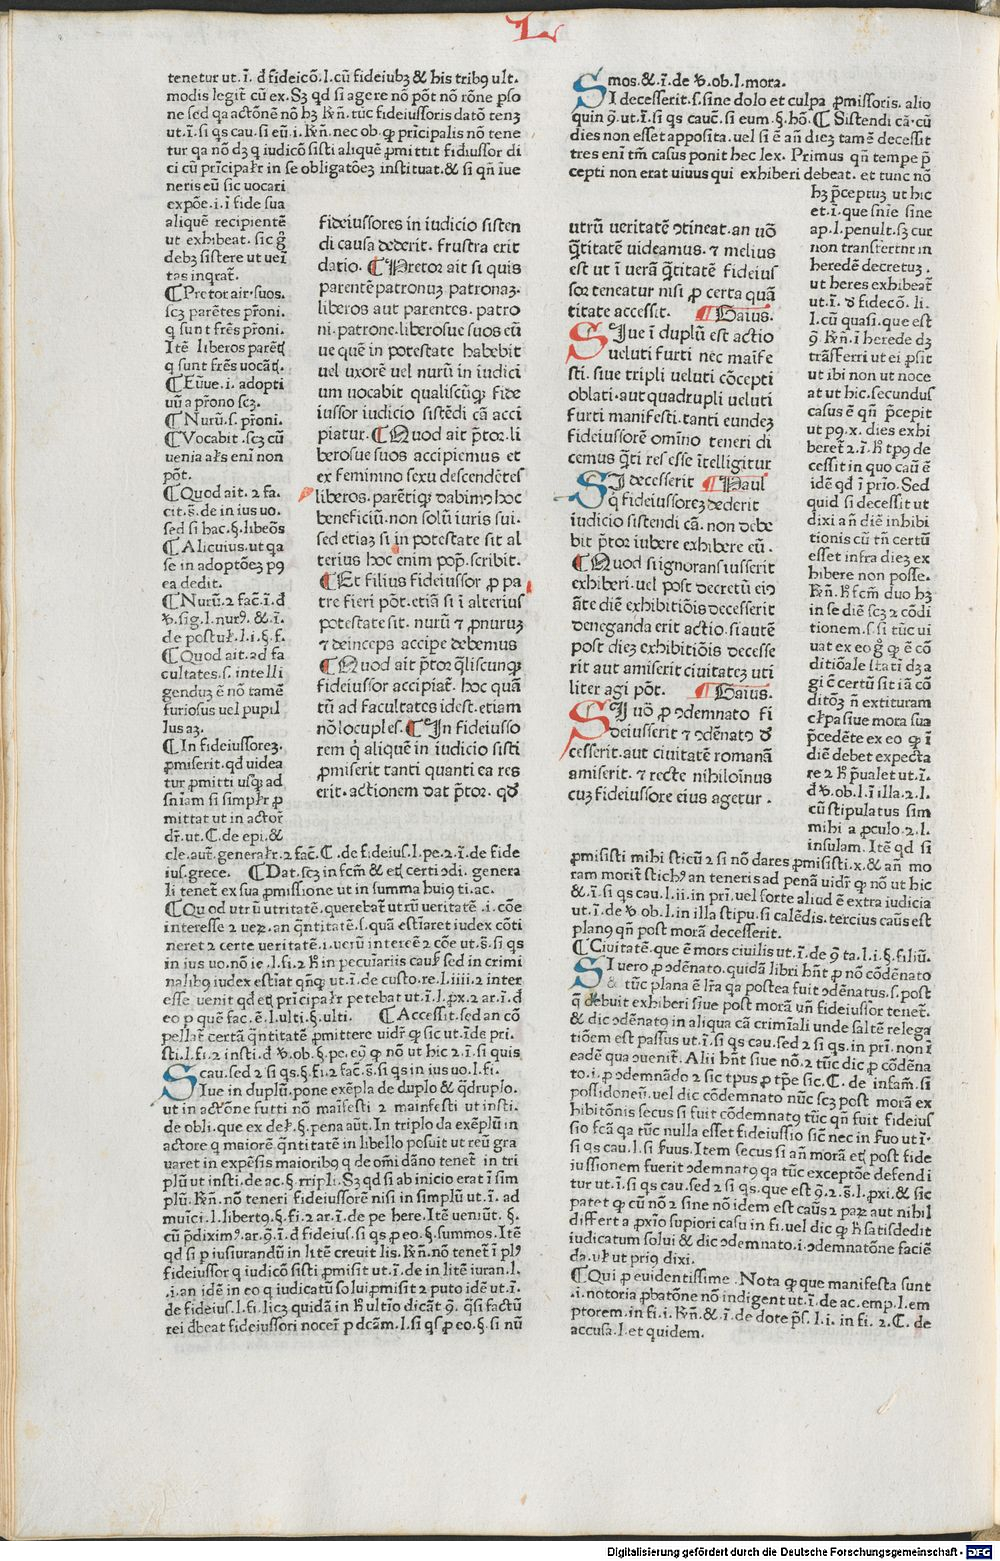 L
tenetur ut. ī. d fideicō. l. cū fideiubꝫ & his tribꝰ ult.
modis legit̄ cū ex. Sꝫ qd si agere nō pōt nō rōne pso
ne sed qa actōnē nō hꝫ Rn̄. tūc fideiussoris datō tenꝫ
ut. ī. si qs cau. si eū. i. Rn̄. nec ob. ꝙ prīcipalis nō tene
tur qa nō dꝫ q iudicō sisti aliquē ꝓmittit fidiussor di
ci cū prīcipalr̄ in se obligatōeꝫ instituat. & si qn̄ īue
neris eū sic uocari
expōe. i. ī fide sua
aliquē recipientē
ut exhibeat. sic g̃
debꝫ sistere ut uei
tas inqrat̄.
¶ Pretor air. suos.
scꝫ parētes pr̄oni.
q sunt frēs pr̄oni.
Itē liberos parēt
q sunt frēs uocāt.
¶ Eūue. i. adopti
uū a pr̄ono scꝫ.
¶ Nurū. s. pr̄oni.
¶ Vocabit. scꝫ cū
uenia alr̄s eni non
pōt.
¶ Quod ait. 2 fa.
cit. s̄. de in ius uo.
sed si hac. §. libeōs
¶ Alicuius. ut qa
se in adoptōeꝫ pꝰ
ea dedit.
¶ Nurū. 2 fac̄. ī. d
v. sig. l. nurꝰ. & .ī.
de postul̄. l. i. §. f.
¶ Quod ait. ad fa
cultates. s. intelli
genduꝫ ē nō tamē
furiosus uel pupil
lus aꝫ.
¶ In fideiussoreꝫ.
ꝓmiserit. qd uidea
tur ꝓmitti usqꝫ ad
sn̄iam si simpłr ꝓ
mittat ut in actor̄
dr̄. ut. C. de epi. &
cle. aut̄. generałr. 2 fac̄. C. de fideius. l. pe. 2. ī. de fide
ius. grece. ¶ Dat. scꝫ in fcm̄ & et certi ↄdi. genera
li tenet̄ ex sua ꝓmissione ut in summa huiꝰ ti. ac.
¶ Quod utrū utritatē. querebat̄ utrū ueritatē. i. cōe
interesse 2 ueꝫ. an q̄ntitatē. s. quā estīaret iudex cōti
neret 2 certe ueritatē. i. uerū intereē 2 cōe ut. s̄. si qs
in ius uo. nō ie. l. fi. 2 R in pecuīariis causꝫ sed in crimi
nalibꝰ iudex estiat q̄nqꝫ ut. ī. de custo. re. l. iiii. 2 inter
esse uenit qd et prīcipałr petebat ut. ī. l. ꝓx. 2 ar. ī. d
eo p quē fac. ē. l. ulti. §. ulti. ¶ Accessit. sed an cō
pellat̄ certā q̄ntitatē ꝓmittere uidr̄ ꝙ sic ut. ī de pri.
sti. l. fi. 2 insti. d v. ob. §. pe. eꝰ ꝙ nō ut hic 2. ī. si quis
cau. sed 2 si qs. §. fi. 2 fac̄. s̄. si qs in ius uo. l. fi.
Siue in duplū. pone exēpla de duplo & q̄druplo.
ut in actōne futti nō maīfesti 2 mainfesti ut insti.
de obli. que ex del̄. §. pena aūt. In triplo da exēplū in
actore q maiorē q̄ntitatē in libello posuit ut reū gra
uaret in expēsis maioribꝰ q de om̄i dāno tenet̄ in tri
plū ut insti. de ac. §. rripli. Sꝫ qd si ab inicio erat ī sim
plū. Rn̄. nō teneri fideiussorē nisi in simplū ut. ī. ad
muīci. l. libertꝰ. §. fi. 2 ar. ī. de pe here. Itē ueniūt. §.
cū p̄diximꝰ. ar. ꝯ. ī. d fideius. si qs ꝓ eo. §. summos. Itē
qd si p iusiurandū in litē creuit lis. Rn̄. nō tenet̄ ī plꝰ
fideiussor q iudicō sisti ꝓmisit ut. ī. de in litē iuran. l.
.i. an idē in eo q iudicatū solui ꝓmisit 2 puto idē ut. ī.
de fideius. l. fi. licꝫ quidā in R ultīo dicāt ꝯ. q̄si factū
rei dbeat fideiussori nocei p dcām. l. si qs ꝓ eo. §. si nū
fideiussores in iudicio sisten
di causa dederit. frustra erit
datio. ¶ Pretor ait si quis
parentē patronuꝫ patronaꝫ.
liberos aut parentes. patro
ni. patrone. liberosue suos eū
ue quē in potestate habebit
uel uxorē uel nurū in iudici
um uocabit qualiscūqꝫ fide
iussor iudicio sistēdi cā acci
piatur. ¶ Quod ait p̄tor. li
berosue suos accipiemus et
ex feminino sexu descendētes
liberos. parētiqꝫ dabimꝰ hoc
beneficiū. non solū iuris sui.
sed etiaꝫ si in potestate sit al
terius hoc enim pop̄. scribit.
¶ Et filius fideiussor ꝓ pa
tre fieri pōt. etiā si ī alterius
potestate sit. nurū ⁊ ꝓnuruꝫ
⁊ deinceps accipe debemus
¶ Quod ait p̄tor q̄liscunqꝫ
fideiussor accipiat̄. hoc quā
tū ad facultates idest. etiam
nō locuples. ¶ In fideiusso
rem q̇ aliquē in iudicio sisti
ꝓmiserit tanti quanti ea res
erit. actionem dat p̄tor. qd
Smos. & .ī. de v. ob. l. mora.
I decesserit. s. sine dolo et culpa ꝓmissoris. alio
quin ꝯ. ut. ī. si qs cauc̄. si eum. §. hō. ¶ Sistendi cā. cū
dies non esset apposita. uel si ē an̄ dieꝫ tamē decessit
tres eni tm̄ casus ponit hec lex. Primus qn̄ tempe p̄
cepti non erat uiuus qui exhiberi debeat. et tunc nō
hꝫ p̄ceptuꝫ ut hic
et. ī. que sn̄ie sine
ap. l. penult. sꝫ cur
non transfertnr in
heredē decretuꝫ.
ut heres exhibeat̄
ut. ī. d fidecō. li.
l. cū quasi. que est
ꝯ Rn̄. ī herede dꝫ
trāsferri ut ei ꝓsit
ut ibi non ut noce
at ut hic. secundus
casus ē qn̄ p̄cepit
ut pꝰ. x. dies exhi
beret̄ 2. ī. R tpꝰ de
cessit in quo caū ē
idē qd ī prīo. Sed
quid si decessit ut
dixi an̄ diē inhibi
tionis cū tn̄ certū
esset infra dieꝫ ex
hibere non posse.
Rn̄. R fcm̄ duo hꝫ
in se diē scꝫ 2 cōdi
tionem. s. si tūc ui
uat ex eo g̊ ꝙ ē cō
ditiōale statī dꝫ a
gi c̄ certū sit iā cō
ditōꝫ n̄ extituram
cl̄pa siue mora sua
p̄cedēte ex eo ꝙ ī
diē debet expecta
re 2 R p̄ualet ut. ī.
d v. ob. l. ī illa. 2. l.
cū stipulatus sim
mihi a ꝓculo. 2. l.
insulam. Itē qd si
ꝓmisisti mihi sticū 2 si nō dares ꝓmisisti. x. & an̄ mo
ram morit̄ stichꝰ an teneris ad penā uidr̄ ꝙ nō ut hic
& .ī. si qs cau. l. ii. in pri. uel forte aliud ē extra iudicia
ut. ī. de v. ob. l. in illa stipu. si calēdis. tercius caūs est
planꝰ qn̄ post morā decesserit.
¶ Ciuitatē. que ē mors ciuilis ut. ī. de ꝯ ta. l. i. §. filiū.
SI uero ꝓ ↄdēnato. quidā libri hn̄t ꝓ nō cōdēnato
& tūc plana ē lr̄a qa postea fuit ↄdēnatus. s. post
q̄ debuit exhiberi siue post morā un̄ fideiussor tenet̄.
& dic ↄdēnatꝰ in aliqua cā crimīali unde saltē relega
tiōem est passus ut. ī. si qs cau. sed 2 si qs. in pri. non ī
eadē qua ↄuenit̄. Alii hn̄t siue nō. 2 tūc dic ꝓ cōdēna
to. i. ꝓ ↄdemnādo 2 sic tpus ꝓ tp̄e sic. C. de infam̄. si
possidoneū. uel dic cōdemnato nūc scꝫ post morā ex
hibitōnis secus si fuit cōdemnatꝰ tūc qn̄ fuit fideius
sio fcā qa tūc nulla esset fideiussio sic̄ nec in fuo ut ī.
si qs cau. l. si fuus. Item secus si an̄ morā et post fide
iussionem fuerit ↄdemnatꝰ qa tūc exceptōe defendi
tur ut. ī. si qs cau. sed 2 si qs. que est ꝯ. 2. s̄. l. ꝓxi. & sic
patet ꝙ cū nō 2 sine nō idem est caūs 2 paꝫ aut nibil
differt a ꝓxīo supiori casu in fi. uel dic ꝙ R satisdedit
iudicatum solui & dic ↄdemnato. i. ↄdemnatōne faciē
da. ul̄ ut priꝰ dixi.
¶ Qui p euidentissime. Nota ꝙ que manifesta sunt
.i. notoria ꝓbatōne nō indigent ut. ī. de ac. emp. l. em
ptorem. in fi. i. Rn̄. & .ī. de dote p̄s. l. i. in fi. 2. C. de
accusa. l. et quidem.
utrū ueritatē ↄtineat. an uō
q̄titatē uideamus. ⁊ melius
est ut ī uerā q̄titatē fideius
sor teneatur nisi ꝓ certa quā
titate accessit. ¶ Gaius.
SIue ī duplū est actio
ueluti furti nec maīfe
sti. siue tripli veluti cōcepti
oblati. aut quadrupli ueluti
furti manifesti. tanti eundeꝫ
fideiussorē omīno teneri di
cemus q̄ti res esse ītelligitur
SI decesserit ¶ Paul
q̇ fideiussoreꝫ dederit
iudicio sistendi cā. non debe
bit p̄tor iubere exhibere eū.
¶ Quod si ignorans iusserit
exhiberi. uel post decretū eiꝰ
āte diē exhibitiōis decesserit
deneganda erit actio. si autē
post dieꝫ exhibitiōis decesse
rit aut amiserit ciuitateꝫ uti
liter agi pōt. ¶ Gaius.
SI uō ꝓ ↄdemnato fi
deiusserit ⁊ ↄdēnatꝰ d
cesserit. aut ciuitatē romanā
amiserit. ⁊ recte nihiloīnus
cuꝫ fideiussore eius agetur.
Digitalisierung gefördert durch die Deutsche Forschungsgemeinschaft - DFG